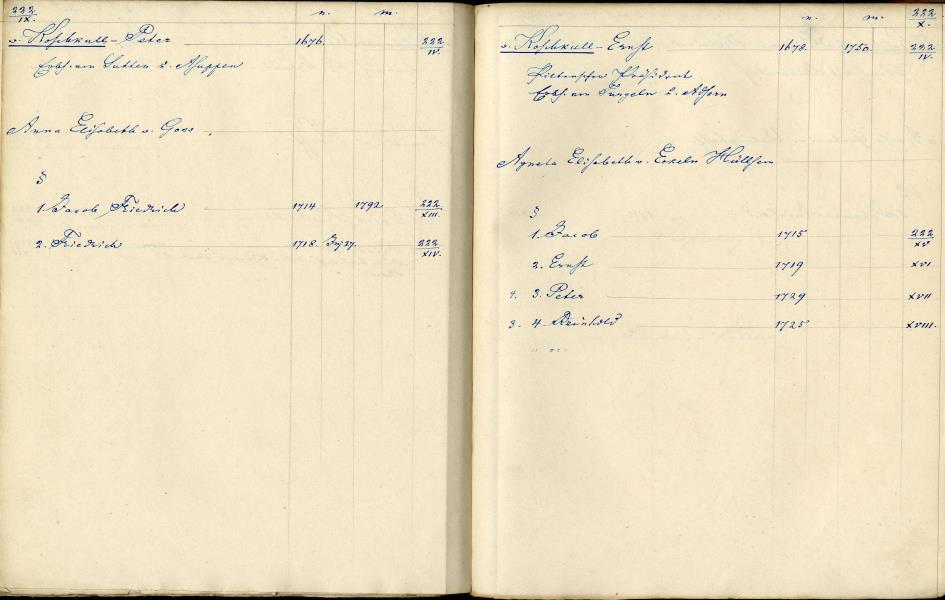 222
IX.
n. m.
v. Koschkull - Peter 1676. 222
IV.
Erbh. von Sutten &
Anna Elisabeth v. Goes
§
1. Jacob Friedrich 1714 1792 222
XIII.
2. Friedrich 1718. 222
XIV.
222
X.
n. m.
v. Koschkull - Ernst 1678. 1750. 222
IV.
Piltenscher Präsident
Erbh. von Targeln & Adsern
Agneta Elisabeth v.
§
1. Jacob 1715 222
XV
2. Ernst 1719 XVI
4. 3. Peter 1729 XVII
3. 4. Reinhold 1725 XVIII.